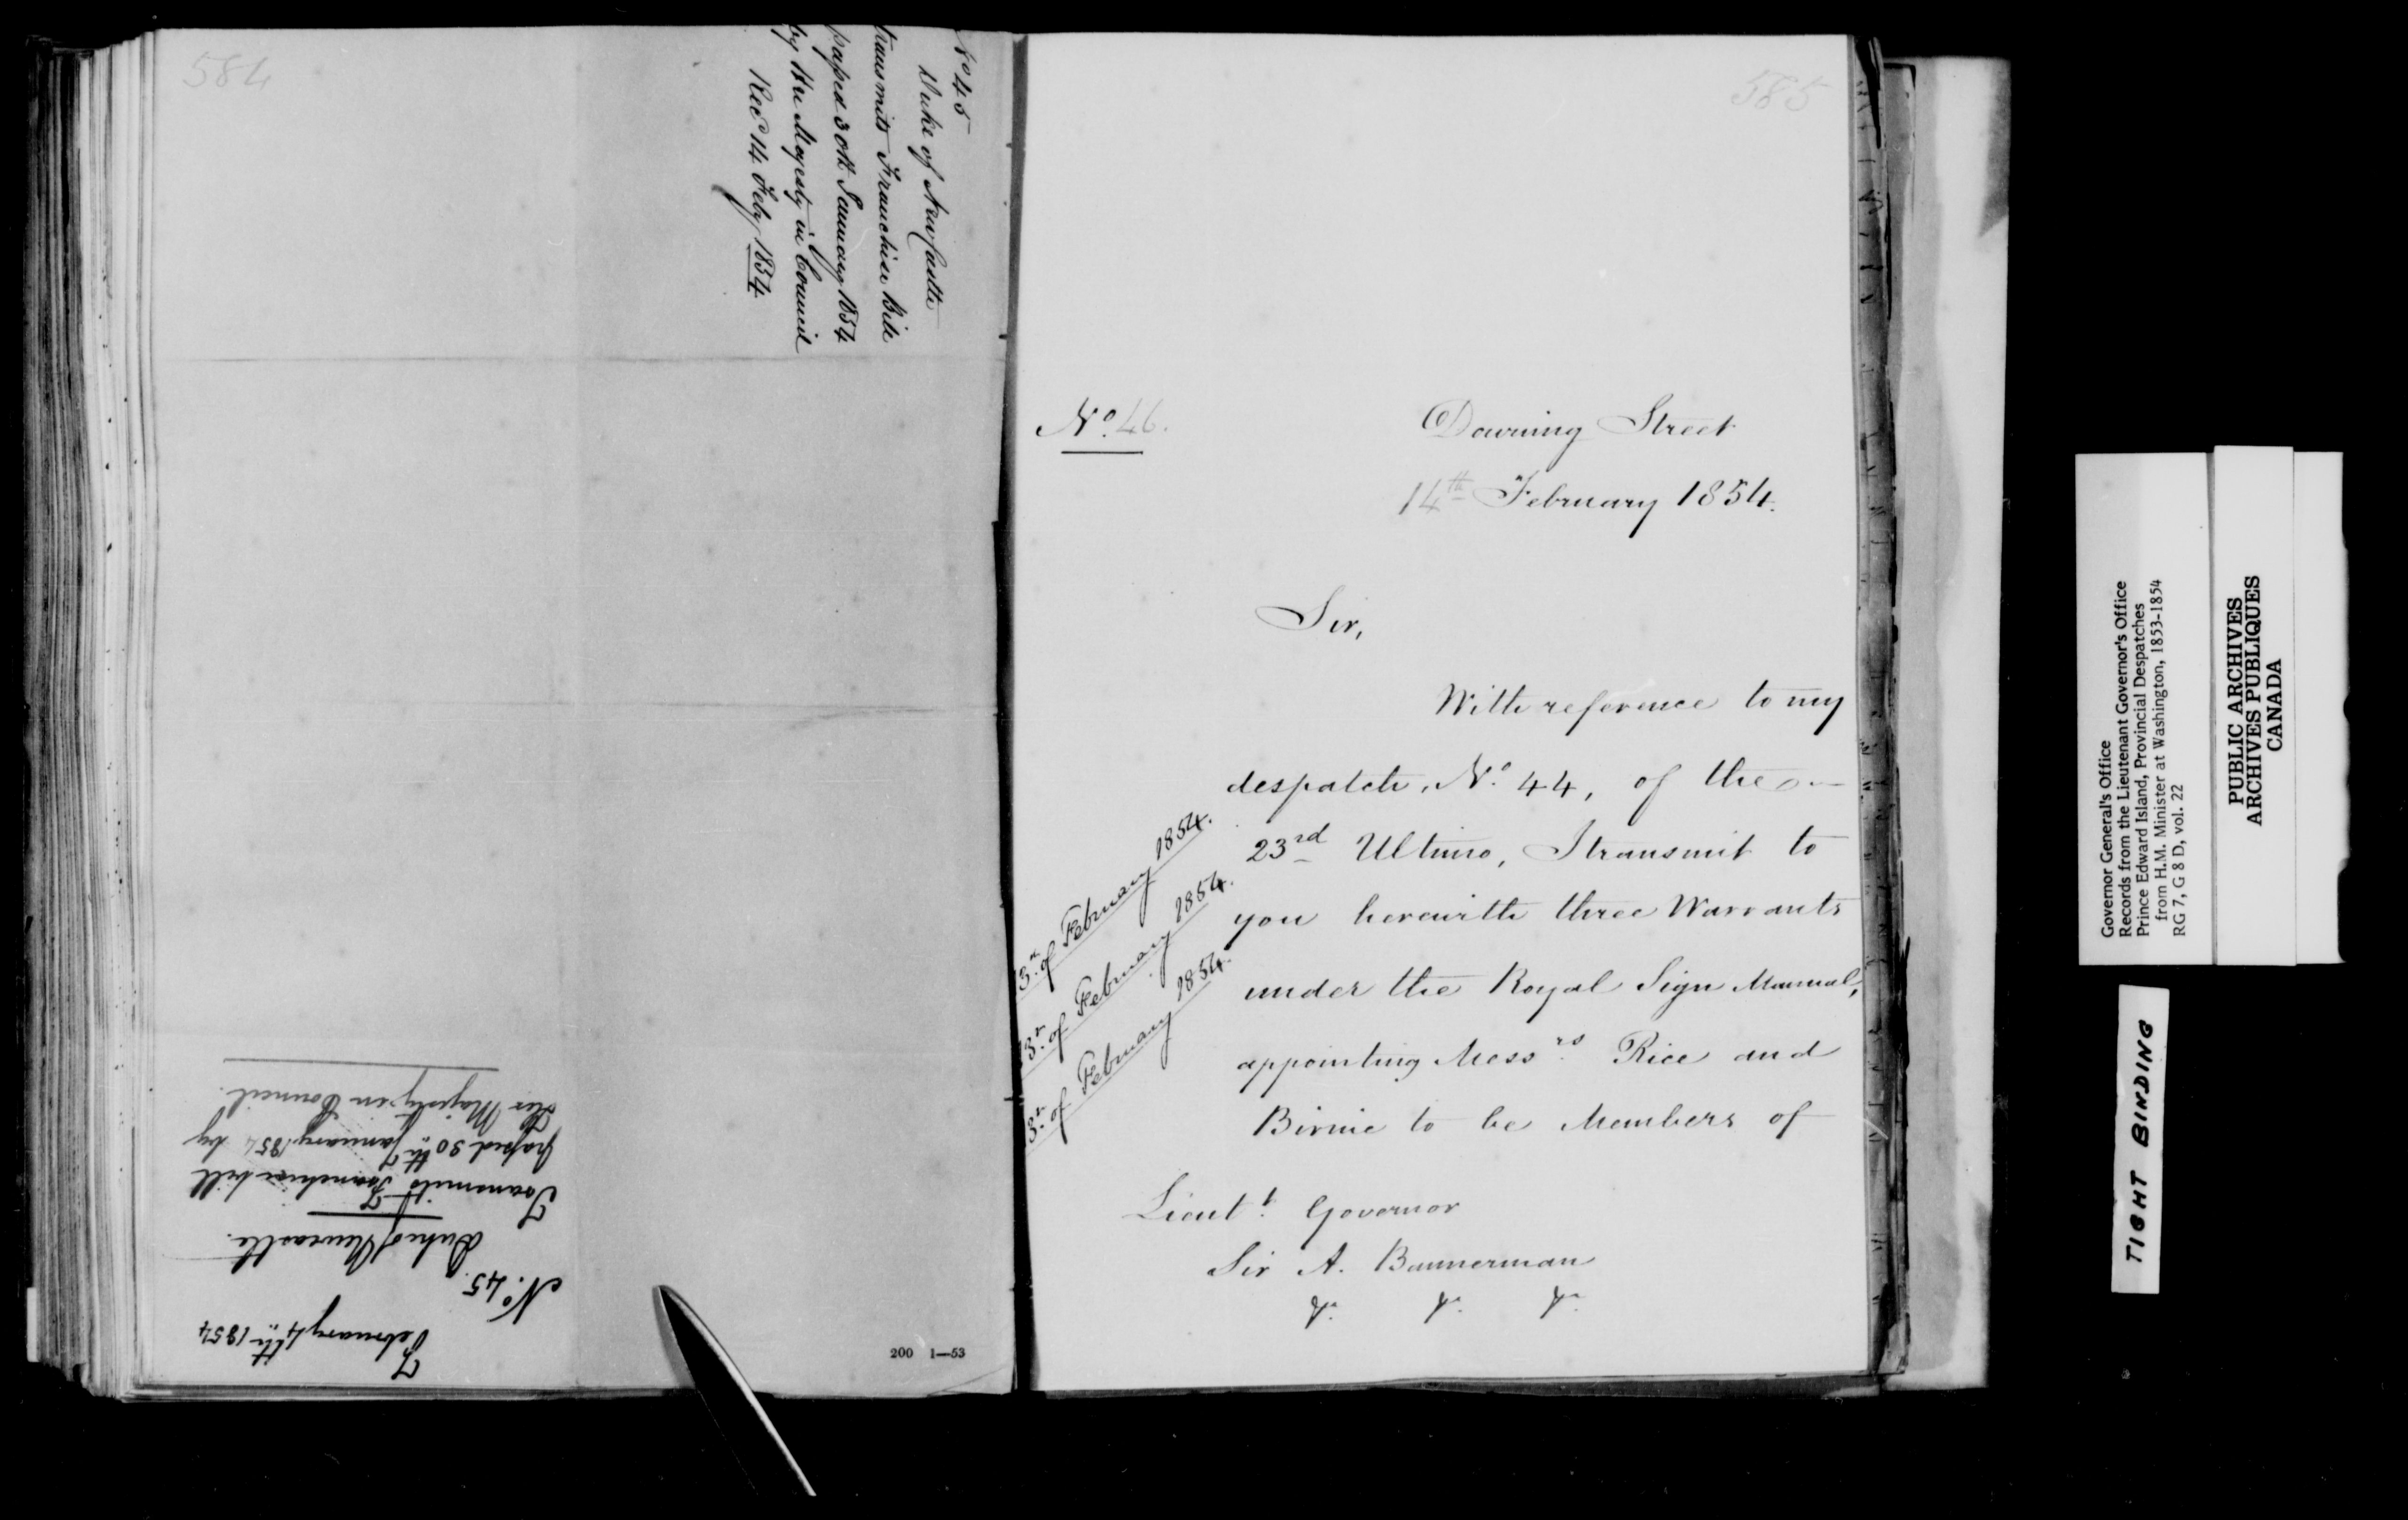 584
No 45
Duke of Newcastle
transmits Franchise Bill
passed 30th January 1854
by Her Majesty in Council
Rec'd 14 Feby 1854
February 4th 1854
No. 45.
Duke of Newcastle.
Transmits Franchise bill
passed 30th January 1854 by
Her Majesty in Council.
200 1—53
585
No. 46.
Downing Street
14th February 1854.
Sir,
With reference to my
despatch, No. 44, of the
23rd Ultimo, I transmit to
you herewith three Warrants
under the Royal Sign Manual,
appointing Messrs. Rice and
Birnie to be Members of
3rd of February 1854.
3rd of February 1854.
3rd of February 1854.
Lieutt. Governor
Sir A. Bannerman
&c. &c. &c.
Governor General's Office
Records from the Lieutenant Governor's Office
Prince Edward Island, Provincial Despatches
from H.M. Minister at Washington, 1853-1854
RG 7, G 8 D, vol. 22
PUBLIC ARCHIVES
ARCHIVES PUBLIQUES
CANADA
TIGHT BINDING